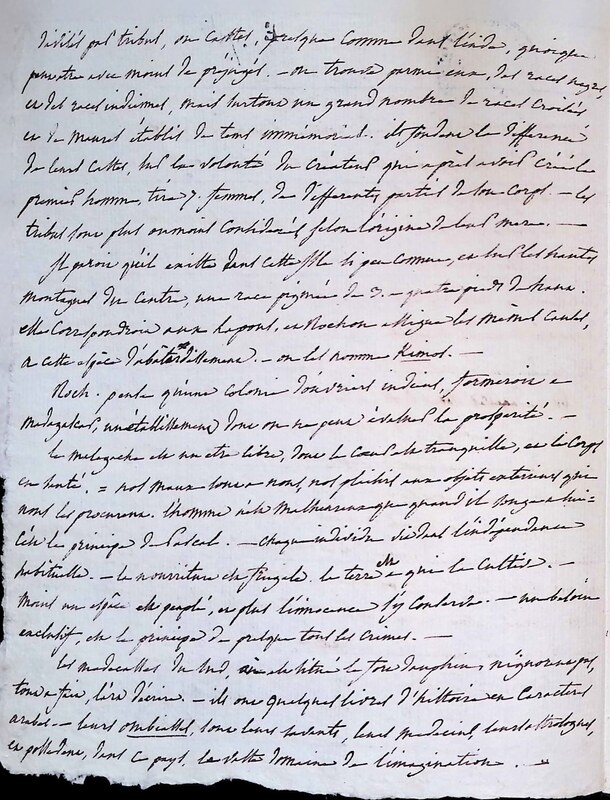 divisés par tribus, ou castes, presque comme dans l'inde, quoique
peut etre avec moins de préjugés. - on trouve parmi eux, des races negres,
et des races indiennes, mais surtout un grand nombre de races croisées
et de maures établis de tems immémorial. ils fondent la difference
de leurs castes, sur la volonté du Créateur qui après avoir créé le
premier homme, tira 7 femmes, de differentes parties de son corps. - les
tribus sont plus ou moins considérées selon l'origine de leur mere. -
Il paroit qu'il existe dans cette isle si peu connue, et sur les hautes
montagnes du centre, une race pigmée de 3. a quatre pieds de haut.
elle correspondroit aux lapons, et Rochon assigne les mêmes causes,
a cette espèce d'abâtardissement. - on les nomme Kimos. -
Roch. pense qu'une colonie d'ouvriers indiens, formeroit a
Madagascar, un établissement dont on ne peut évaluer la prosperité. -
le malegache est un etre libre, dont le coeur est tranquille, et le corps
en santé. = nos maux sont a nous, nos plaisirs aux objets exterieurs qui
nous les procurent. l'homme n'est malheureux que quand il songe a lui -
c'est le principe de Pascal. - chaque individu vit dans l'indépendance
habituelle. - la nourriture est frugale. la terre est a qui la cultive. -
moins un espace est peuplé, et plus l'innocence s'y conserve. - un besoin
exclusif, est le principe de presque tous les crimes. -
Les madecasses du sud, ou est situé le fort dauphin, n'ignorent pas,
tout a fait, lire et écrire. - ils ont quelques livres d'histoire en caracteres
arabes. - leurs ombiasses, sont leurs savants, leurs medecins, leurs astrologues,
et possedent, dans ce pays, le vaste domaine de l'imagination. -